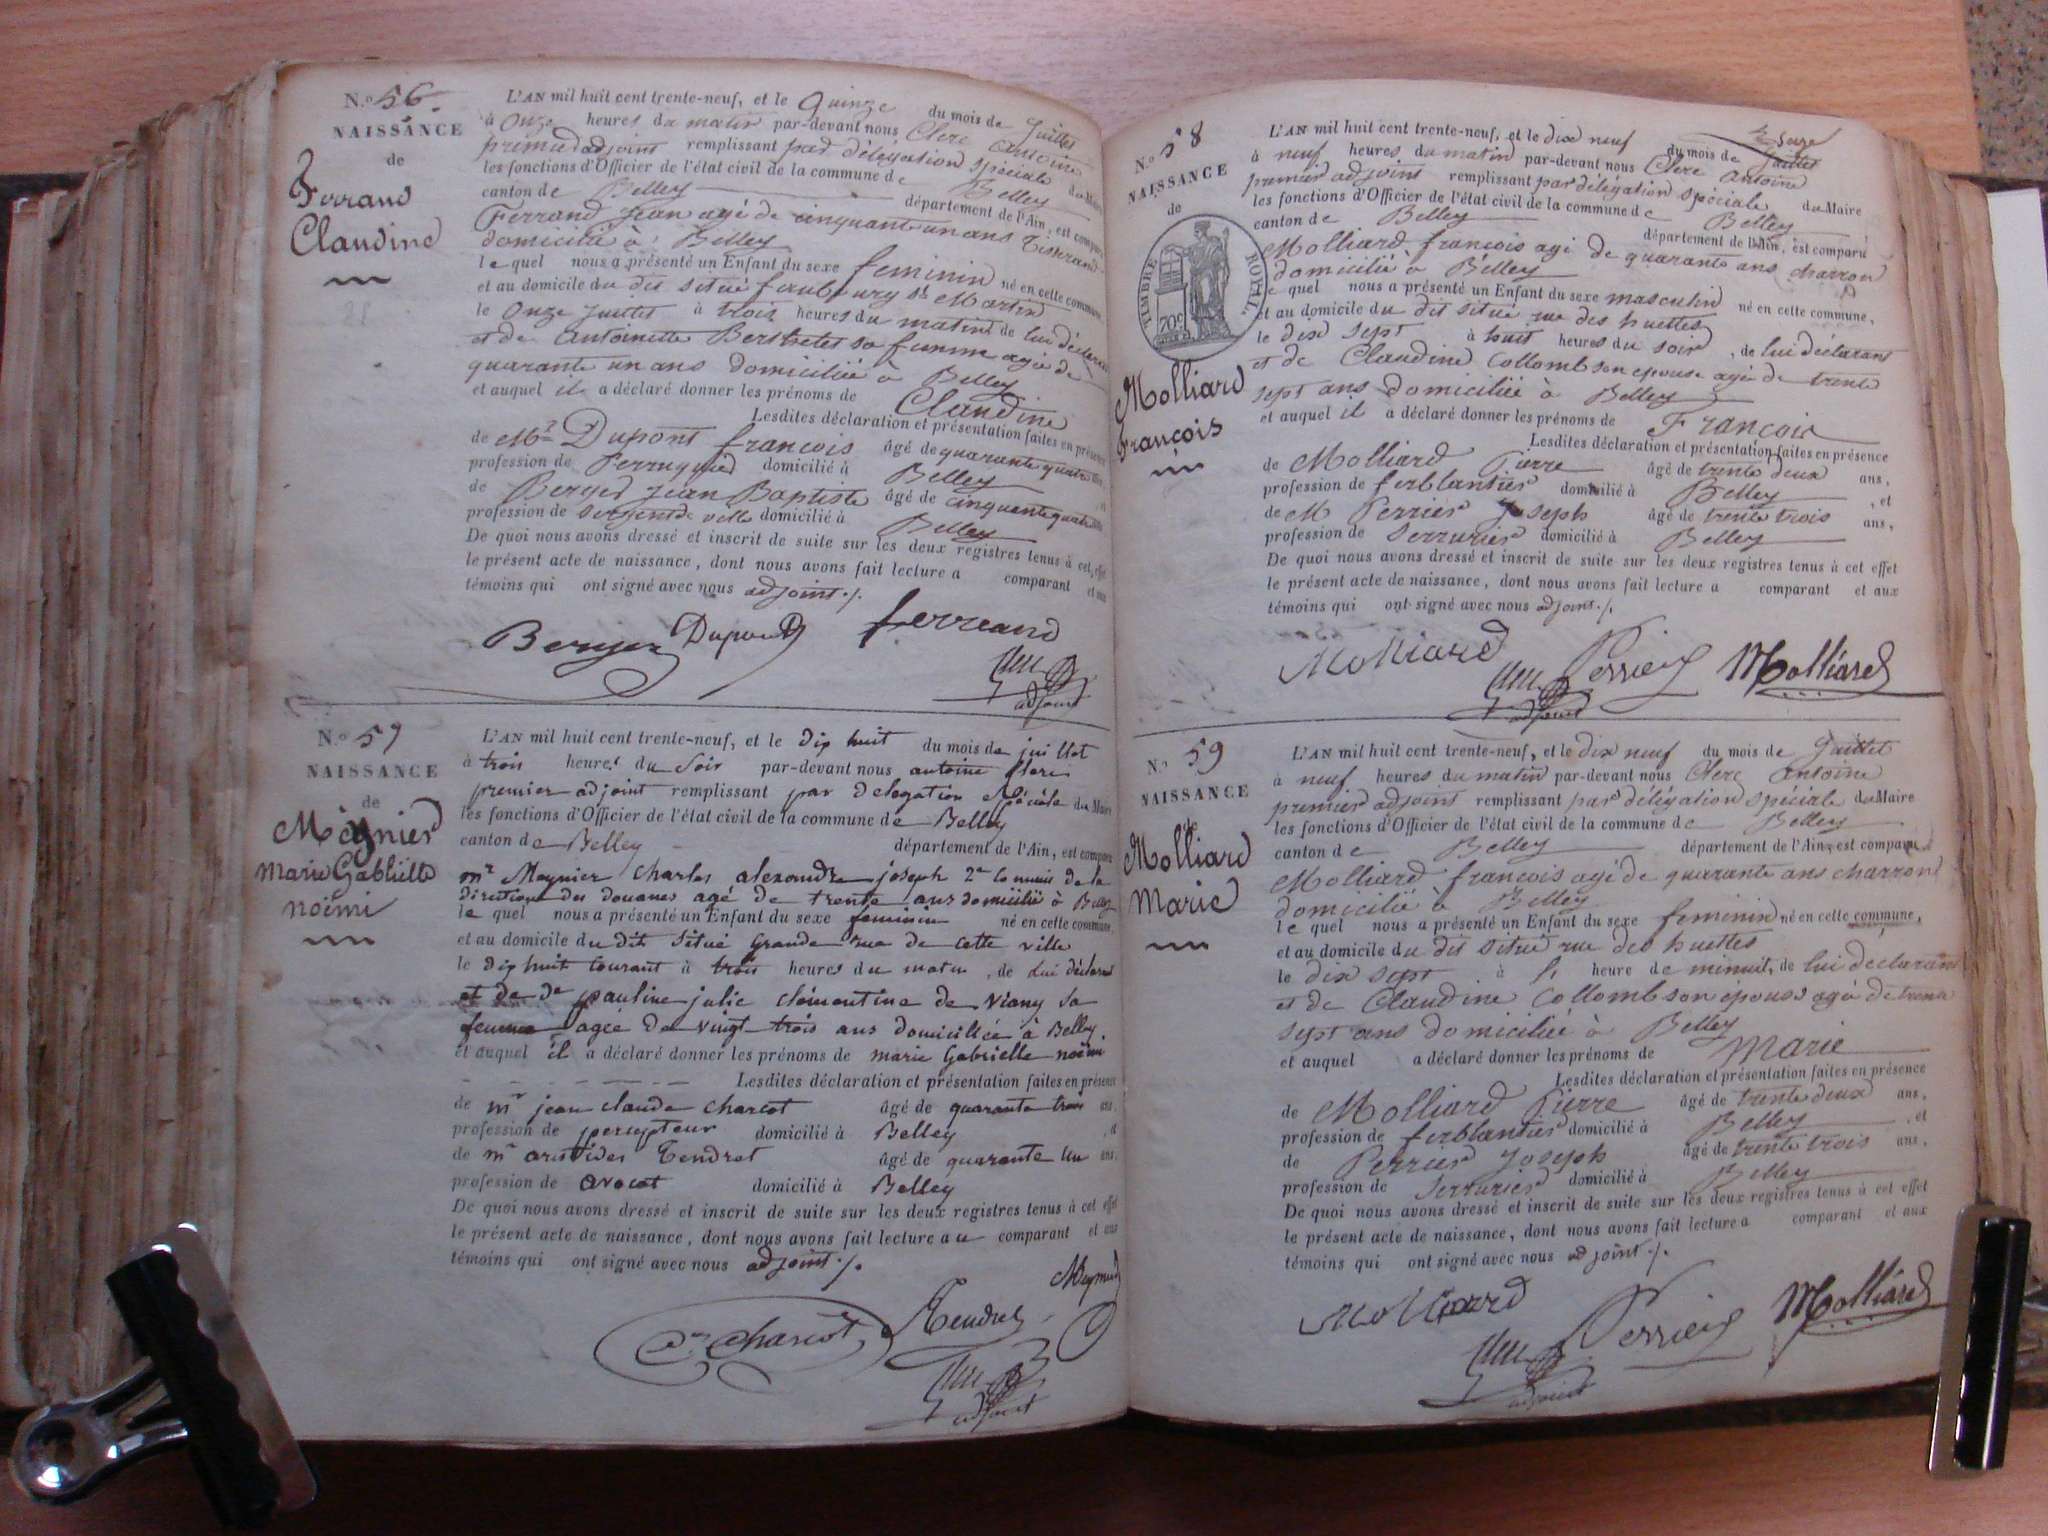 N.º 56.
NAISSANCE
de
Ferrand
Claudine
L'AN mil huit cent trente-neuf, et le Quinze du mois de Juillet
à Onze heures du matin par-devant nous Clerc Antoine
premier adjoint remplissant par délégation spéciale du Maire
les fonctions d'Officier de l'état civil de la commune de Belley
canton de Belley département de l'Ain, est comparu
Ferrand Jean agé de cinquante un ans Tisserand
domicilié à Belley
lequel nous a présenté un Enfant du sexe feminin né en cette commune
et au domicile du dit situé faubourg St Martin
le Onze Juillet à trois heures du matin de lui déclarant
et de Antoinette Berthelet sa femme agée de
quarante un ans domiciliée à Belley
et auquel il a déclaré donner les prénoms de Claudine
Lesdites déclaration et présentation faites en présence
de Mr Dupont françois âgé de quarante quatre ans
profession de Perruquier domicilié à Belley
de Berger Jean Baptiste âgé de cinquante quatre
profession de sergent de ville domicilié à Belley
De quoi nous avons dressé et inscrit de suite sur les deux registres tenus à cet effet
le présent acte de naissance, dont nous avons fait lecture a comparant et aux
témoins qui ont signé avec nous adjoint ./.
Berger Dupont ferreand
adjoint
N.º 57
NAISSANCE
de
Mégnier
Marie Gabrielle
noëmi
L'AN mil huit cent trente-neuf, et le dix huit du mois de juillet
à trois heures du soir par-devant nous antoine Clerc
premier adjoint remplissant par delegation spéciale du Maire
les fonctions d'Officier de l'état civil de la commune de Belley
canton de Belley département de l'Ain, est comparu
mr Meynier charles alexandre joseph 2e commis de la
direction des douanes agé de trente ans domicilié à Belley
lequel nous a présenté un Enfant du sexe feminin né en cette commune,
et au domicile du dit situé Grande rue de cette ville
le dix huit courant à trois heures du matin, de lui déclarant
et de de pauline julie clémentine de Viany sa
femme agée de vingt trois ans domiciliée à Belley
et auquel il a déclaré donner les prénoms de marie Gabrielle noëmi
Lesdites déclaration et présentation faites en présence
de mr jean claude charcot âgé de quarante trois ans,
profession de percepteur domicilié à Belley, et
de mr aristides Tendret âgé de quarante un ans,
profession de avocat domicilié à Belley
De quoi nous avons dressé et inscrit de suite sur les deux registres tenus à cet effet
le présent acte de naissance, dont nous avons fait lecture au comparant et aux
témoins qui ont signé avec nous adjoint ./.
Charcot Tendret Meynier
adjoint
N.º 58
NAISSANCE
de
TIMBRE ROYAL
70c
Molliard
François
L'AN mil huit cent trente-neuf, et le dix neuf du mois de Juillet
à neuf heures du matin par-devant nous Clerc Antoine
premier adjoint remplissant par délégation spéciale du Maire
les fonctions d'Officier de l'état civil de la commune de Belley
canton de Belley département de l'Ain, est comparu
Molliard françois agé de quarante ans charron
domicilié à Belley
lequel nous a présenté un Enfant du sexe masculin né en cette commune,
et au domicile du dit situé rue des huettes
le dix sept à huit heures du soir, de lui déclarant
et de Claudine Collomb son epouse agée de trente
sept ans domiciliée à Belley
et auquel il a déclaré donner les prénoms de François
Lesdites déclaration et présentation faites en présence
de Molliard Pierre âgé de trente deux ans,
profession de ferblantier domicilié à Belley, et
de M Perrier Joseph âgé de trente trois ans,
profession de Serrurier domicilié à Belley
De quoi nous avons dressé et inscrit de suite sur les deux registres tenus à cet effet
le présent acte de naissance, dont nous avons fait lecture a comparant et aux
témoins qui ont signé avec nous adjoint ./.
Molliard Perrier Molliard
adjoint
N.º 59
NAISSANCE
de
Molliard
Marie
L'AN mil huit cent trente-neuf, et le dix neuf du mois de Juillet
à neuf heures du matin par-devant nous Clerc Antoine
premier adjoint remplissant par délégation spéciale du Maire
les fonctions d'Officier de l'état civil de la commune de Belley
canton de Belley département de l'Ain, est comparu
Molliard françois agé de quarante ans charron
domicilié à Belley
lequel nous a présenté un Enfant du sexe feminin né en cette commune,
et au domicile du dit situé rue des huettes
le dix sept à heure de minuit, de lui declarant
et de Claudine Collomb son épouse agé de trente
sept ans domiciliée à Belley
et auquel a déclaré donner les prénoms de Marie
Lesdites déclaration et présentation faites en présence
de Molliard Pierre âgé de trente deux ans,
profession de ferblantier domicilié à Belley, et
de Perrier Joseph âgé de trente trois ans,
profession de Serrurier domicilié à Belley
De quoi nous avons dressé et inscrit de suite sur les deux registres tenus à cet effet
le présent acte de naissance, dont nous avons fait lecture a comparant et aux
témoins qui ont signé avec nous adjoint ./.
Molliard Perrier Molliard
adjoint